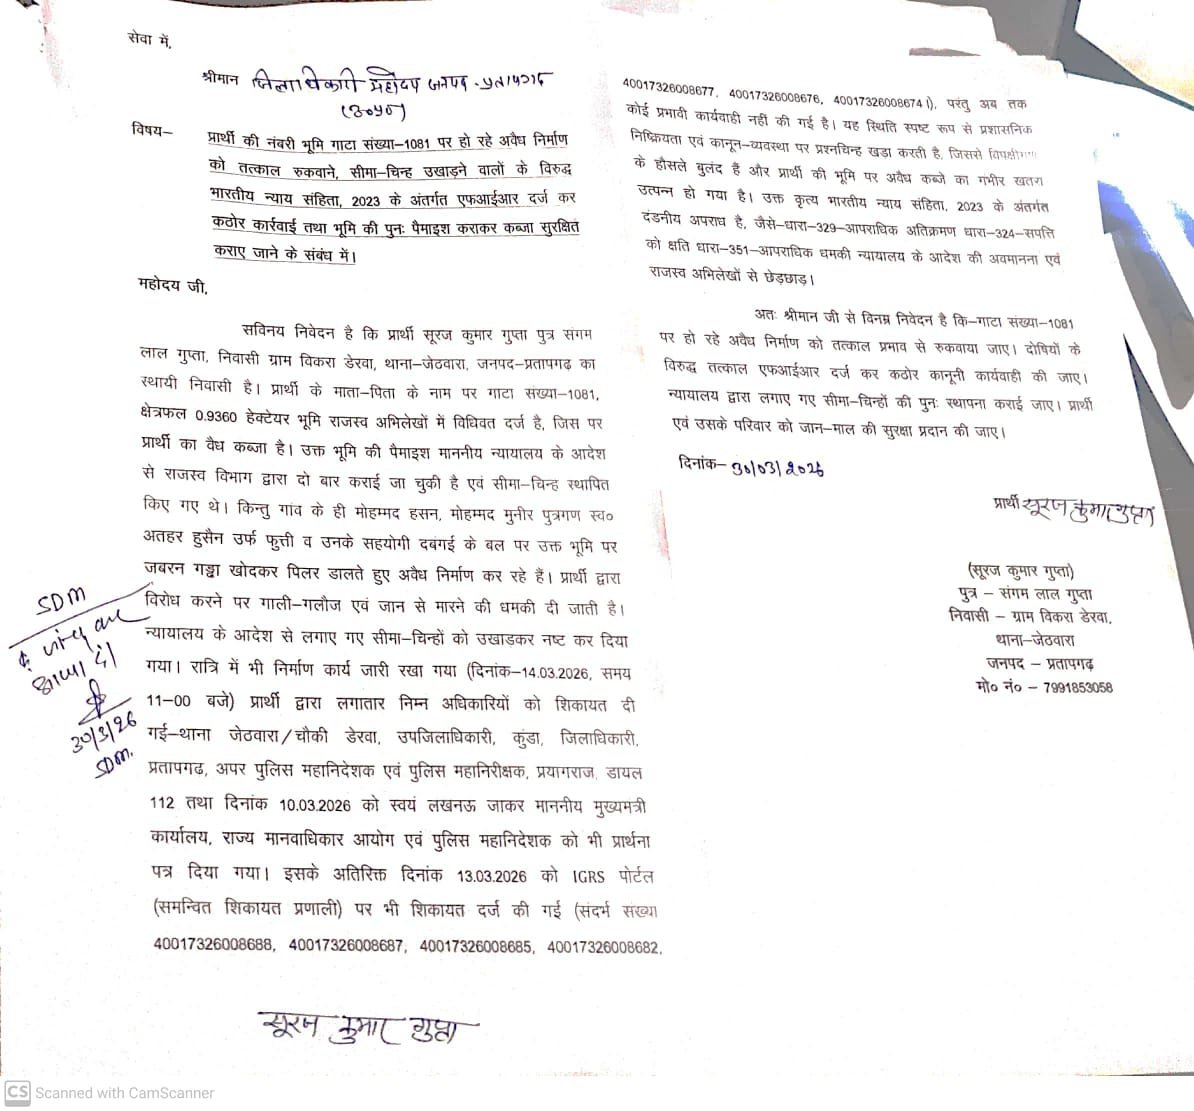 सेवा में,
श्रीमान जिलाधिकारी महोदय जनपद - प्रतापगढ़
(उ०प्र०)
विषय–
प्रार्थी की नंबरी भूमि गाटा संख्या–1081 पर हो रहे अवैध निर्माण
को तत्काल रुकवाने, सीमा–चिन्ह उखाड़ने वालों के विरुद्ध
भारतीय न्याय संहिता, 2023 के अंतर्गत एफआईआर दर्ज कर
कठोर कार्रवाई तथा भूमि की पुनः पैमाइश कराकर कब्जा सुरक्षित
कराए जाने के संबंध में।
महोदय जी,
सविनय निवेदन है कि प्रार्थी सूरज कुमार गुप्ता पुत्र संगम
लाल गुप्ता, निवासी ग्राम विकरा डेरवा, थाना–जेठवारा, जनपद–प्रतापगढ़ का
स्थायी निवासी है। प्रार्थी के माता–पिता के नाम पर गाटा संख्या–1081,
क्षेत्रफल 0.9360 हेक्टेयर भूमि राजस्व अभिलेखों में विधिवत दर्ज है, जिस पर
प्रार्थी का वैध कब्जा है। उक्त भूमि की पैमाइश माननीय न्यायालय के आदेश
से राजस्व विभाग द्वारा दो बार कराई जा चुकी है एवं सीमा–चिन्ह स्थापित
किए गए थे। किन्तु गांव के ही मोहम्मद हसन, मोहम्मद मुनीर पुत्रगण स्व०
अतहर हुसैन उर्फ फुत्ती व उनके सहयोगी दबंगई के बल पर उक्त भूमि पर
जबरन गड्ढा खोदकर पिलर डालते हुए अवैध निर्माण कर रहे हैं। प्रार्थी द्वारा
विरोध करने पर गाली–गलौज एवं जान से मारने की धमकी दी जाती है।
न्यायालय के आदेश से लगाए गए सीमा–चिन्हों को उखाड़कर नष्ट कर दिया
गया। रात्रि में भी निर्माण कार्य जारी रखा गया (दिनांक–14.03.2026, समय
11–00 बजे) प्रार्थी द्वारा लगातार निम्न अधिकारियों को शिकायत दी
गई–थाना जेठवारा/चौकी डेरवा, उपजिलाधिकारी, कुंडा, जिलाधिकारी,
प्रतापगढ, अपर पुलिस महानिदेशक एवं पुलिस महानिरीक्षक, प्रयागराज, डायल
112 तथा दिनांक 10.03.2026 को स्वयं लखनऊ जाकर माननीय मुख्यमंत्री
कार्यालय, राज्य मानवाधिकार आयोग एवं पुलिस महानिदेशक को भी प्रार्थना
पत्र दिया गया। इसके अतिरिक्त दिनांक 13.03.2026 को IGRS पोर्टल
(समन्वित शिकायत प्रणाली) पर भी शिकायत दर्ज की गई (संदर्भ संख्या
40017326008688, 40017326008687, 40017326008685, 40017326008682,
सूरज कुमार गुप्ता
SDM
जांच कर
आख्या दें।
30/3/26
SDM.
40017326008677, 40017326008676, 40017326008674।), परंतु अब तक
कोई प्रभावी कार्यवाही नहीं की गई है। यह स्थिति स्पष्ट रूप से प्रशासनिक
निष्क्रियता एवं कानून–व्यवस्था पर प्रश्नचिन्ह खडा करती है, जिससे विपक्षीगण
के हौसले बुलंद हैं और प्रार्थी की भूमि पर अवैध कब्जे का गंभीर खतरा
उत्पन्न हो गया है। उक्त कृत्य भारतीय न्याय संहिता, 2023 के अंतर्गत
दंडनीय अपराध है, जैसे–धारा–329–आपराधिक अतिक्रमण धारा–324–सपत्ति
को क्षति धारा–351–आपराधिक धमकी न्यायालय के आदेश की अवमानना एवं
राजस्व अभिलेखों से छेड़छाड़।
अतः श्रीमान जी से विनम्र निवेदन है कि–गाटा संख्या–1081
पर हो रहे अवैध निर्माण को तत्काल प्रभाव से रुकवाया जाए। दोषियों के
विरुद्ध तत्काल एफआईआर दर्ज कर कठोर कानूनी कार्यवाही की जाए।
न्यायालय द्वारा लगाए गए सीमा–चिन्हों की पुनः स्थापना कराई जाए। प्रार्थी
एवं उसके परिवार को जान–माल की सुरक्षा प्रदान की जाए।
दिनांक– 30/03/2026
प्रार्थी सूरज कुमार गुप्ता
(सूरज कुमार गुप्ता)
पुत्र – संगम लाल गुप्ता
निवासी – ग्राम विकरा डेरवा,
थाना–जेठवारा
जनपद – प्रतापगढ़
मो० नं० – 7991853058
CS Scanned with CamScanner